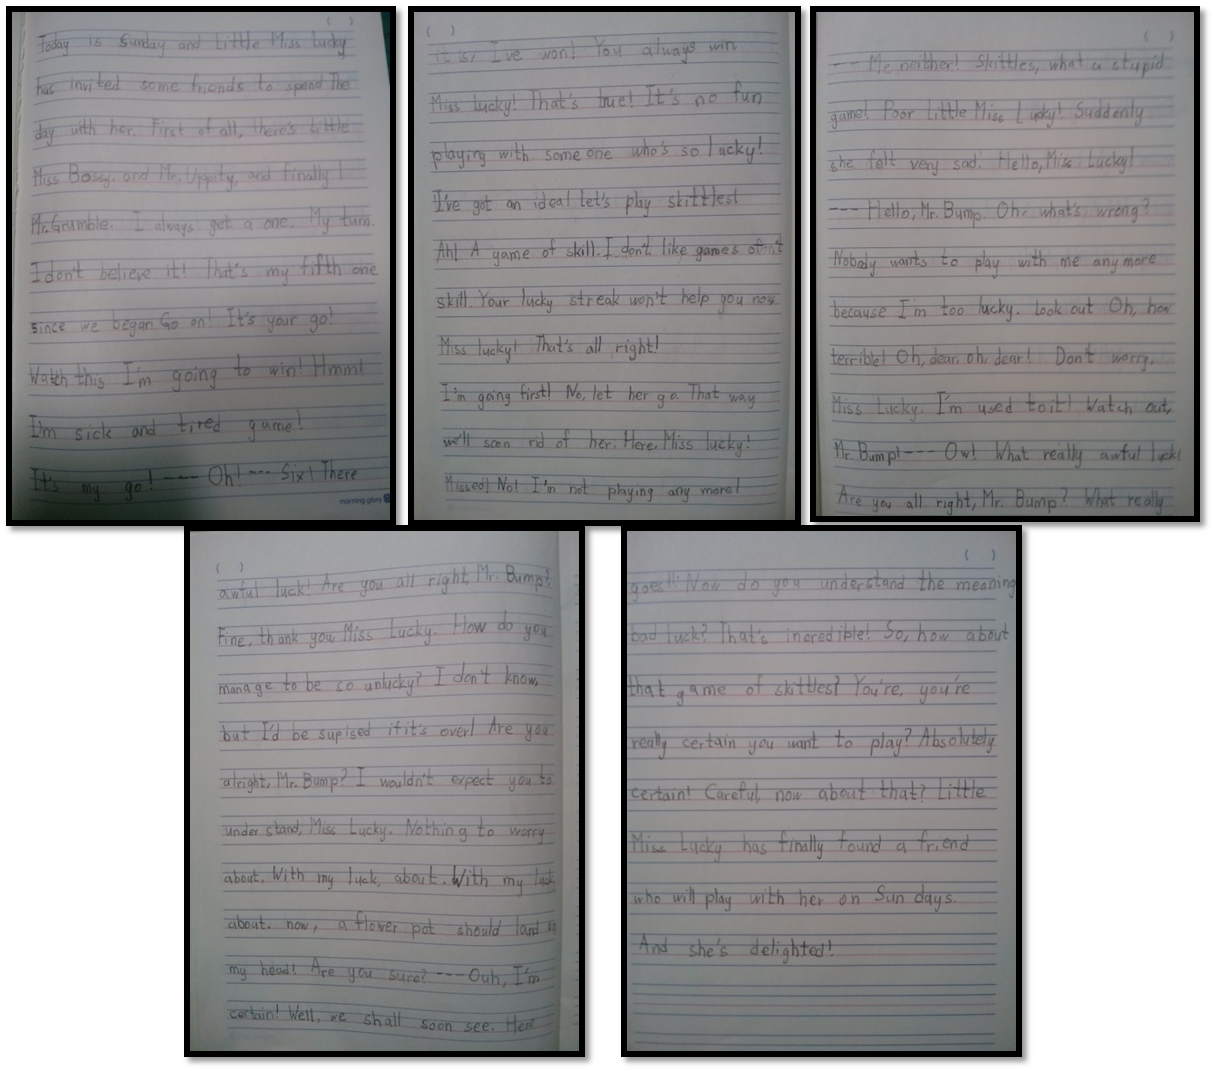 ( )
Today is Sunday and Little Miss Lucky
has invited some friends to spend The
day with her. First of all, there's Little
Miss Bossy. and Mr. Uppity, and finally!
Mr. Grumble. I always get a one. My turn.
I don't believe it! That's my fifth one
since we began. Go on! It's your go!
Watch this I'm going to win! Hmm!
I'm sick and tired game!
It's my go! --- Oh! --- Six! There
morning glory
( )
it is, I've won! You always win
Miss lucky! That's true! It's no fun
playing with some one who's so lucky!
I've got an idea! Let's play skittles!
Ah! A game of skill. I don't like games of
skill. Your lucky streak won't help you now
Miss lucky! That's all right!
I'm going first! No, let her go. That way
we'll soon rid of her. Here, Miss lucky!
Missed! No! I'm not playing any more!
( )
--- Me, neither! Skittles, what a stupid
game! Poor Little Miss Lucky! Suddenly
she felt very sad. Hello, Miss Lucky!
--- Hello, Mr. Bump. Oh, what's wrong?
Nobody wants to play with me any more
because I'm too lucky. Look out Oh, how
terrible! Oh, dear, oh, dear! Don't worry,
Miss Lucky. I'm used to it! Watch out,
Mr. Bump! --- Ow! What really awful luck!
Are you all right, Mr. Bump? What really
( )
awful luck! Are you all right, Mr. Bump?
Fine, thank you Miss Lucky. How do you
manage to be so unlucky? I don't know,
but I'd be supised if it's over! Are you
alright, Mr. Bump? I wouldn't expect you to
under stand, Miss Lucky. Nothing to worry
about. With my luck, about. With my luck
about. now, a flower pot should land on
my head! Are you sure? --- Ouh, I'm
certain! Well, we shall soon see. Here
( )
goes!! Now do you understand the meaning
bad luck? That's incredible! So, how about
that game of skittles? You're, you're
really certain you want to play? Absolutely
certain! Careful, now about that? Little
Miss Lucky has finally found a friend
who will play with her on Sun days.
And she's delighted!